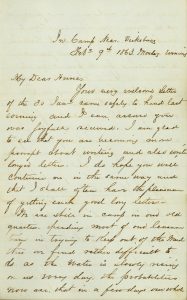 In Camp Near Vicksburg
Feby 9th 1863 Monday evening
My Dear
Your very welcome letter
of the 30 Jany came safely to hand last
evening and I can assure you
was joyfully received. I am glad
to see that you are becoming so
prompt about writing and also write
longer letters. I do hope you will
continue on in the same way and
that I shall often have the pleasure
of getting such good long letters.
We are still in camp in our old
quarters spending most of our
time in trying to keep out of the mud
this we find rather difficult to
do as the water is always rising
so as many days the probabilities
now are that in a few days our whole